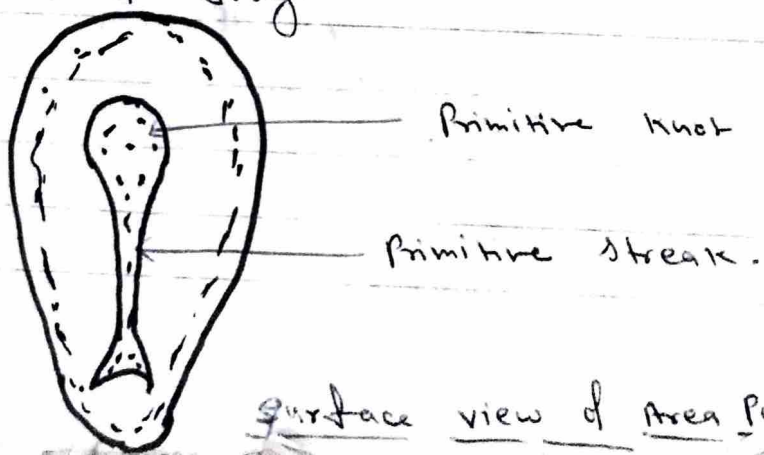 Primitive Knot
Primitive Streak.
Surface view of Area